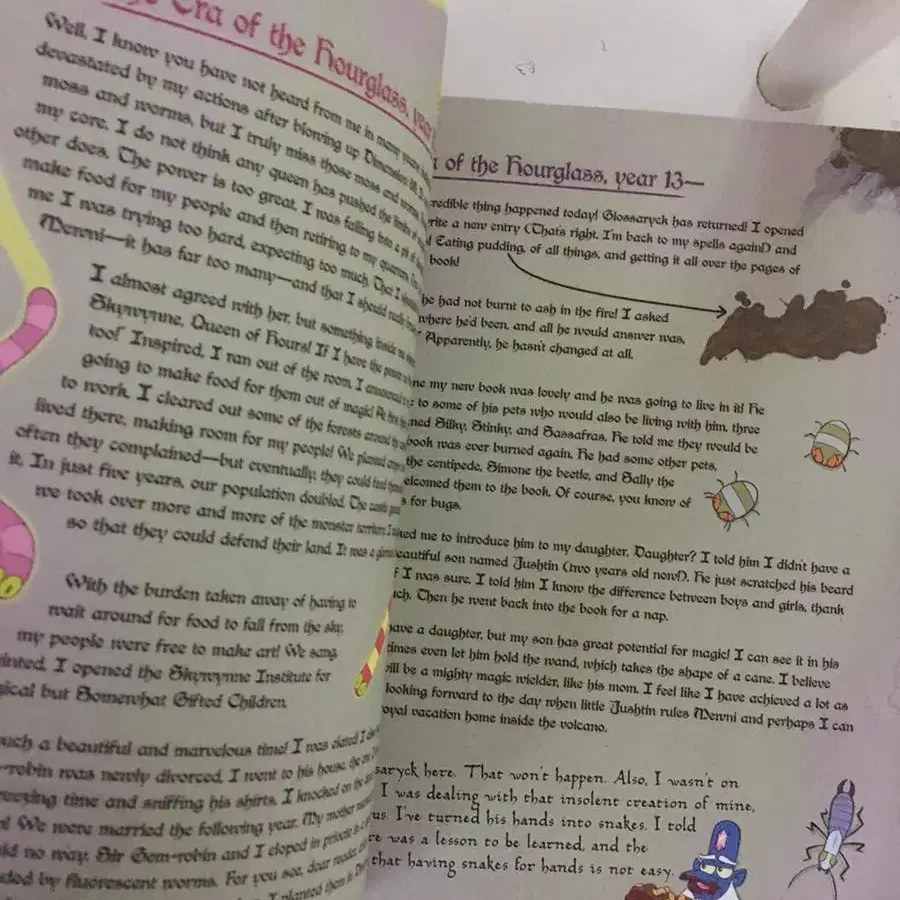 Era of the Hourglass, year
Well, I know you have not heard from me in many years
devastated by my actions after blowing up Dimension
moss and worms, but I truly miss those moss and worms.
my core. I do not think any queen has pushed the limits of
other does. The power is too great. I was falling into a pit of
make food for my people and then retiring to my quarters.
me I was trying too hard, expecting too much. That I
Mewni—it has far too many—and that I should
I almost agreed with her, but something inside
Skywynne, Queen of Hours! If I have the power
too!" Inspired, I ran out of the room. I announced
going to make food for them out of magic!
to work. I cleared out some of the forests around
lived there, making room for my people! We planted
often they complained—but eventually, they could
it. In just five years, our population doubled. The
we took over more and more of the monster territory.
so that they could defend their land. It was a
With the burden taken away of having to
wait around for food to fall from the sky,
my people were free to make art! We sang,
I opened the Skywynne Institute for
gical but Somewhat Gifted Children.
such a beautiful and marvelous time! I was elated!
-robin was newly divorced. I went to his house,
time and sniffing his shirts. I knocked on the
We were married the following year. My mother
no way. Sir Gem-robin and I eloped in private
by fluorescent worms. For you see, dear reader,
I planted them in
of the Hourglass, year 13—
redible thing happened today! Glossaryck has returned! I opened
rite a new entry (That's right, I'm back to my spells again!) and
! Eating pudding, of all things, and getting it all over the pages of
book!
he had not burnt to ash in the fire! I asked
where he'd been, and all he would answer was,
Apparently, he hasn't changed at all.
me my new book was lovely and he was going to live in it! He
to some of his pets who would also be living with him, three
med Silky, Stinky, and Sassafras. He told me they would be
book was ever burned again. He had some other pets,
the centipede, Simone the beetle, and Sally the
elcomed them to the book. Of course, you know of
s for bugs.
ed me to introduce him to my daughter. Daughter? I told him I didn't have a
eautiful son named Jushtin (two years old now!). He just scratched his beard
f I was sure. I told him I know the difference between boys and girls, thank
ch. Then he went back into the book for a nap.
have a daughter, but my son has great potential for magic! I can see it in his
times even let him hold the wand, which takes the shape of a cane. I believe
ill be a mighty magic wielder, like his mom. I feel like I have achieved a lot as
looking forward to the day when little Jushtin rules Mewni and perhaps I can
oyal vacation home inside the volcano.
saryck here. That won't happen. Also, I wasn't on
I was dealing with that insolent creation of mine,
us. I've turned his hands into snakes. I told
re was a lesson to be learned, and the
that having snakes for hands is not easy.